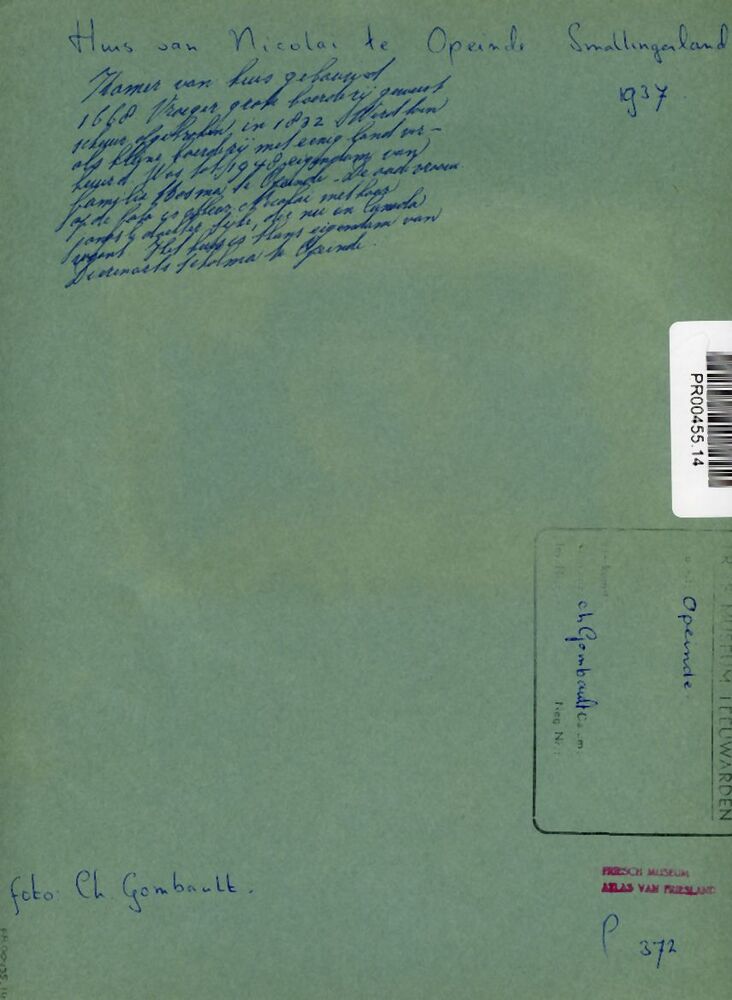 Huis van Nicolai te Opeinde Smallingerland
1937
Kamer van huis gebouwd
1668 Vroeger grote boerderij geweest
schuur afgebroken in 1832 Werd toen
als kleine boerderij met eenig land ver-
huurd Was tot 1948 eigendom van
familie Bosma te Opeinde. De oude vrouw
op de foto is Nicolai met haar
jongste dochter die nu in Canada
woont Het huis is thans eigendom van
Dierenarts Scholma te Opeinde.
PR00455.14
MUSEUM LEEUWARDEN
Opeinde
Ch Gombault
Neg. Nr.
foto: Ch. Gombault.
FRIESCH MUSEUM
ATLAS VAN FRIESLAND
P 372